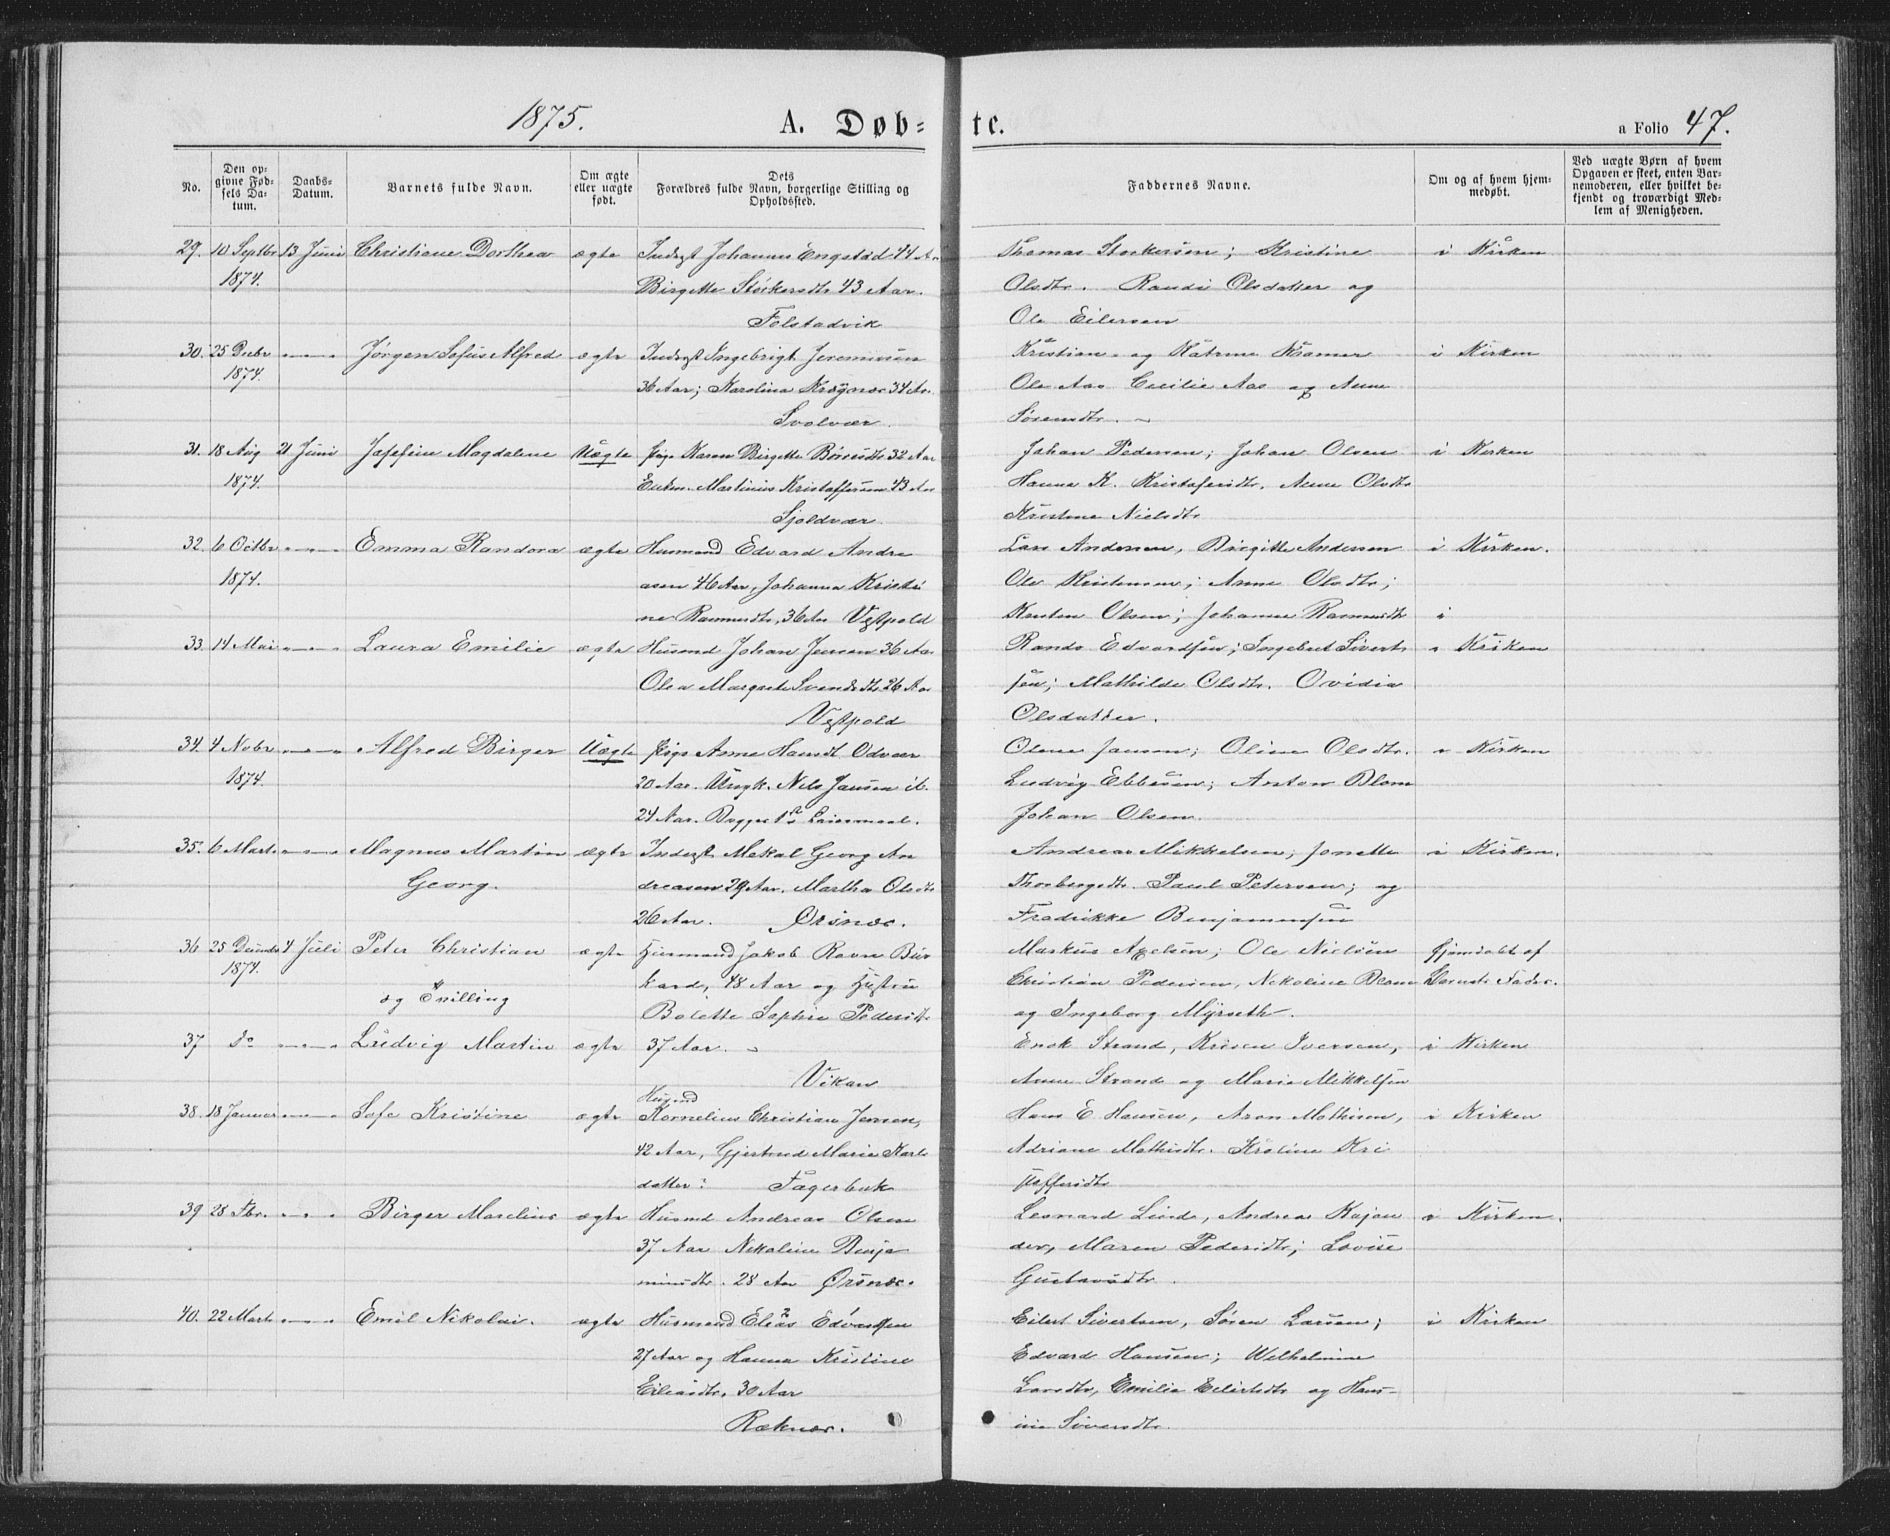 1875. A. Døb- te. a Folio 47.
No. Den op- givne Fød- sels Da- tum. Daabs- Datum. Barnets fulde Navn. Om ægte eller uægte født. Dets Forældres fulde Navn, borgerlige Stilling og Opholdssted. Faddernes Navne. Om og af hvem hjem- medøbt. Ved uægte Børn af hvem Opgaven er skeet, enten Bar- nemoderen, eller hvilket be- kjendt og troværdigt Med- lem af Menigheden.
29. 10 Septbr 13 Juni Christiane Dorthea ægte Inderst Johannes Engstad 44 Aar Thomas Storkersen; Kristine i Kirken
1874. Birgitte Størkersdtr 43 Aar. Olsdtr. Randi Olsdatter og
Felstadvik Ole Eilersen
30. 25 Decbr Jørgen Sofus Alfred ægte Inderst Ingebrigt Jeremiasen Kristian og Katrine Kramer i Kirken
1874. 36 Aar; Karolina 34 Aar Ole Aas Cecilie Aas og Anne
Svolvær. Sørensdtr.
31. 18 Aug 21 Juni Josefine Magdalene Uægte Pige Karen Birgitte 32 Aar Johan Pedersen; Johan Olsen i Kirken
1874. Martinus Kristoffersen 43 Aar Hanna K. Kristofersdtr. Anne Olsdtr
Sjoldvær. Kristine Nielsdtr
32. 6 Octbr Emma Randora ægte Husmand Edvard Andre Lars Andersen, Birgitte Andersen i Kirken.
1874. asen 46 Aar, Johanna Kristi Ole Kristensen; Anne Olsdtr;
ne Rasmusdtr, 36 Aar Vestpold Olsen; Johanne Rasmusdtr i
33. 14 Mai Laura Emilie ægte Husmd Johan Jensen 36 Aar Rando Edvardsen; Ingebret Sivert Kirken
Olea Margrete Svendsdtr 26 Aar sen; Mathilde Olsdtr. Ovidia
Vestpold Olsdatter.
34. 4 Novbr Alfred Birger Uægte Pige Anne Hansdt Odvær Olene Jansen; Oline Olsdtr. Kirken
1874. 20 Aar. Ungk. Nils Jansen ib. Ludvig Ebbesen; Anton Blom
24 Aar. Begges 1ste Leiermaal. Johan Olsen.
35. 6 Marts Magnus Martin ægte Inderst Mekal Georg An Andreas Mikkelsen; Jonette i Kirken.
Georg. dreasen 29 Aar. Martha Olsdtr Thorbergsdtr. Paul Petersen; og
26 Aar. Ørsnæs. Fredrikke Benjaminsen
36 25 Decembr 4 Juli Peter Christian ægte Husmand Jakob Ravn Bur Markus Axelsen; Ole Nielsen Hjemdøbt af
1874. kard, 48 Aar og Hustru Christian Pedersen, Nikoline Blom Barnets Fader.
og Tvilling Bolette Sophie Pedersdtr og Ingeborg Myrseth.
37 do Ludvig Martin ægte 37 Aar. Erik Strand, Iversen, i Kirken
Vikan Anne Strand og Maria Mikkelsen
38. 18 Januar Sofe Kristine ægte Husmd Kornelius Christian Jensen, Hans E Hansen, Aron Mathisen, i Kirken
42 Aar, Gjertrud Maria Karl Adriane Mathisdtr. Kroline Kri
datter: Fagerbuk stoffersdtr
39 28 Fbr. Birger Marelius ægte Husmd Andreas Olsen Leonard Lind, Andrea Kajan i Kirken.
37 Aar Nikoline Benja der, Maren Pedersdtr; Lovise
minsdtr. 28 Aar Ørsnæs. Gustavsdtr.
40. 22 Marts Emil Nikolai. ægte Husmand Elias Edvardsen Eilert Sivertsen, Søren Larsen; i Kirken
27 Aar og Hanna Kristine Edvard Hansen; Wilhelmine
Eliasdtr. 30 Aar Larsdtr, Emilie Eilertsdtr og Han-
Røknæs. ine Sivertsdtr